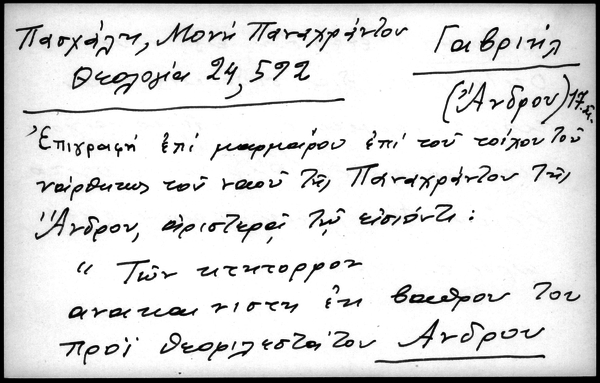 Πασχάλη, Μονὴ Παναχράντου
Θεολογία 24, 592
Γαβριὴλ
(Ἄνδρου) 17.
Ἐπιγραφὴ ἐπὶ μαρμάρου ἐπὶ τοῦ τοίχου τοῦ
νάρθηκος τοῦ ναοῦ τῆς Παναχράντου τῆς
Ἄνδρου, ἀριστερᾷ τῷ εἰσιόντι:
" Τῶν κτητορρον
ανακαινιστη ἐκ βαθρου του
προϊ θεοφιλεστάτου Ανδρου